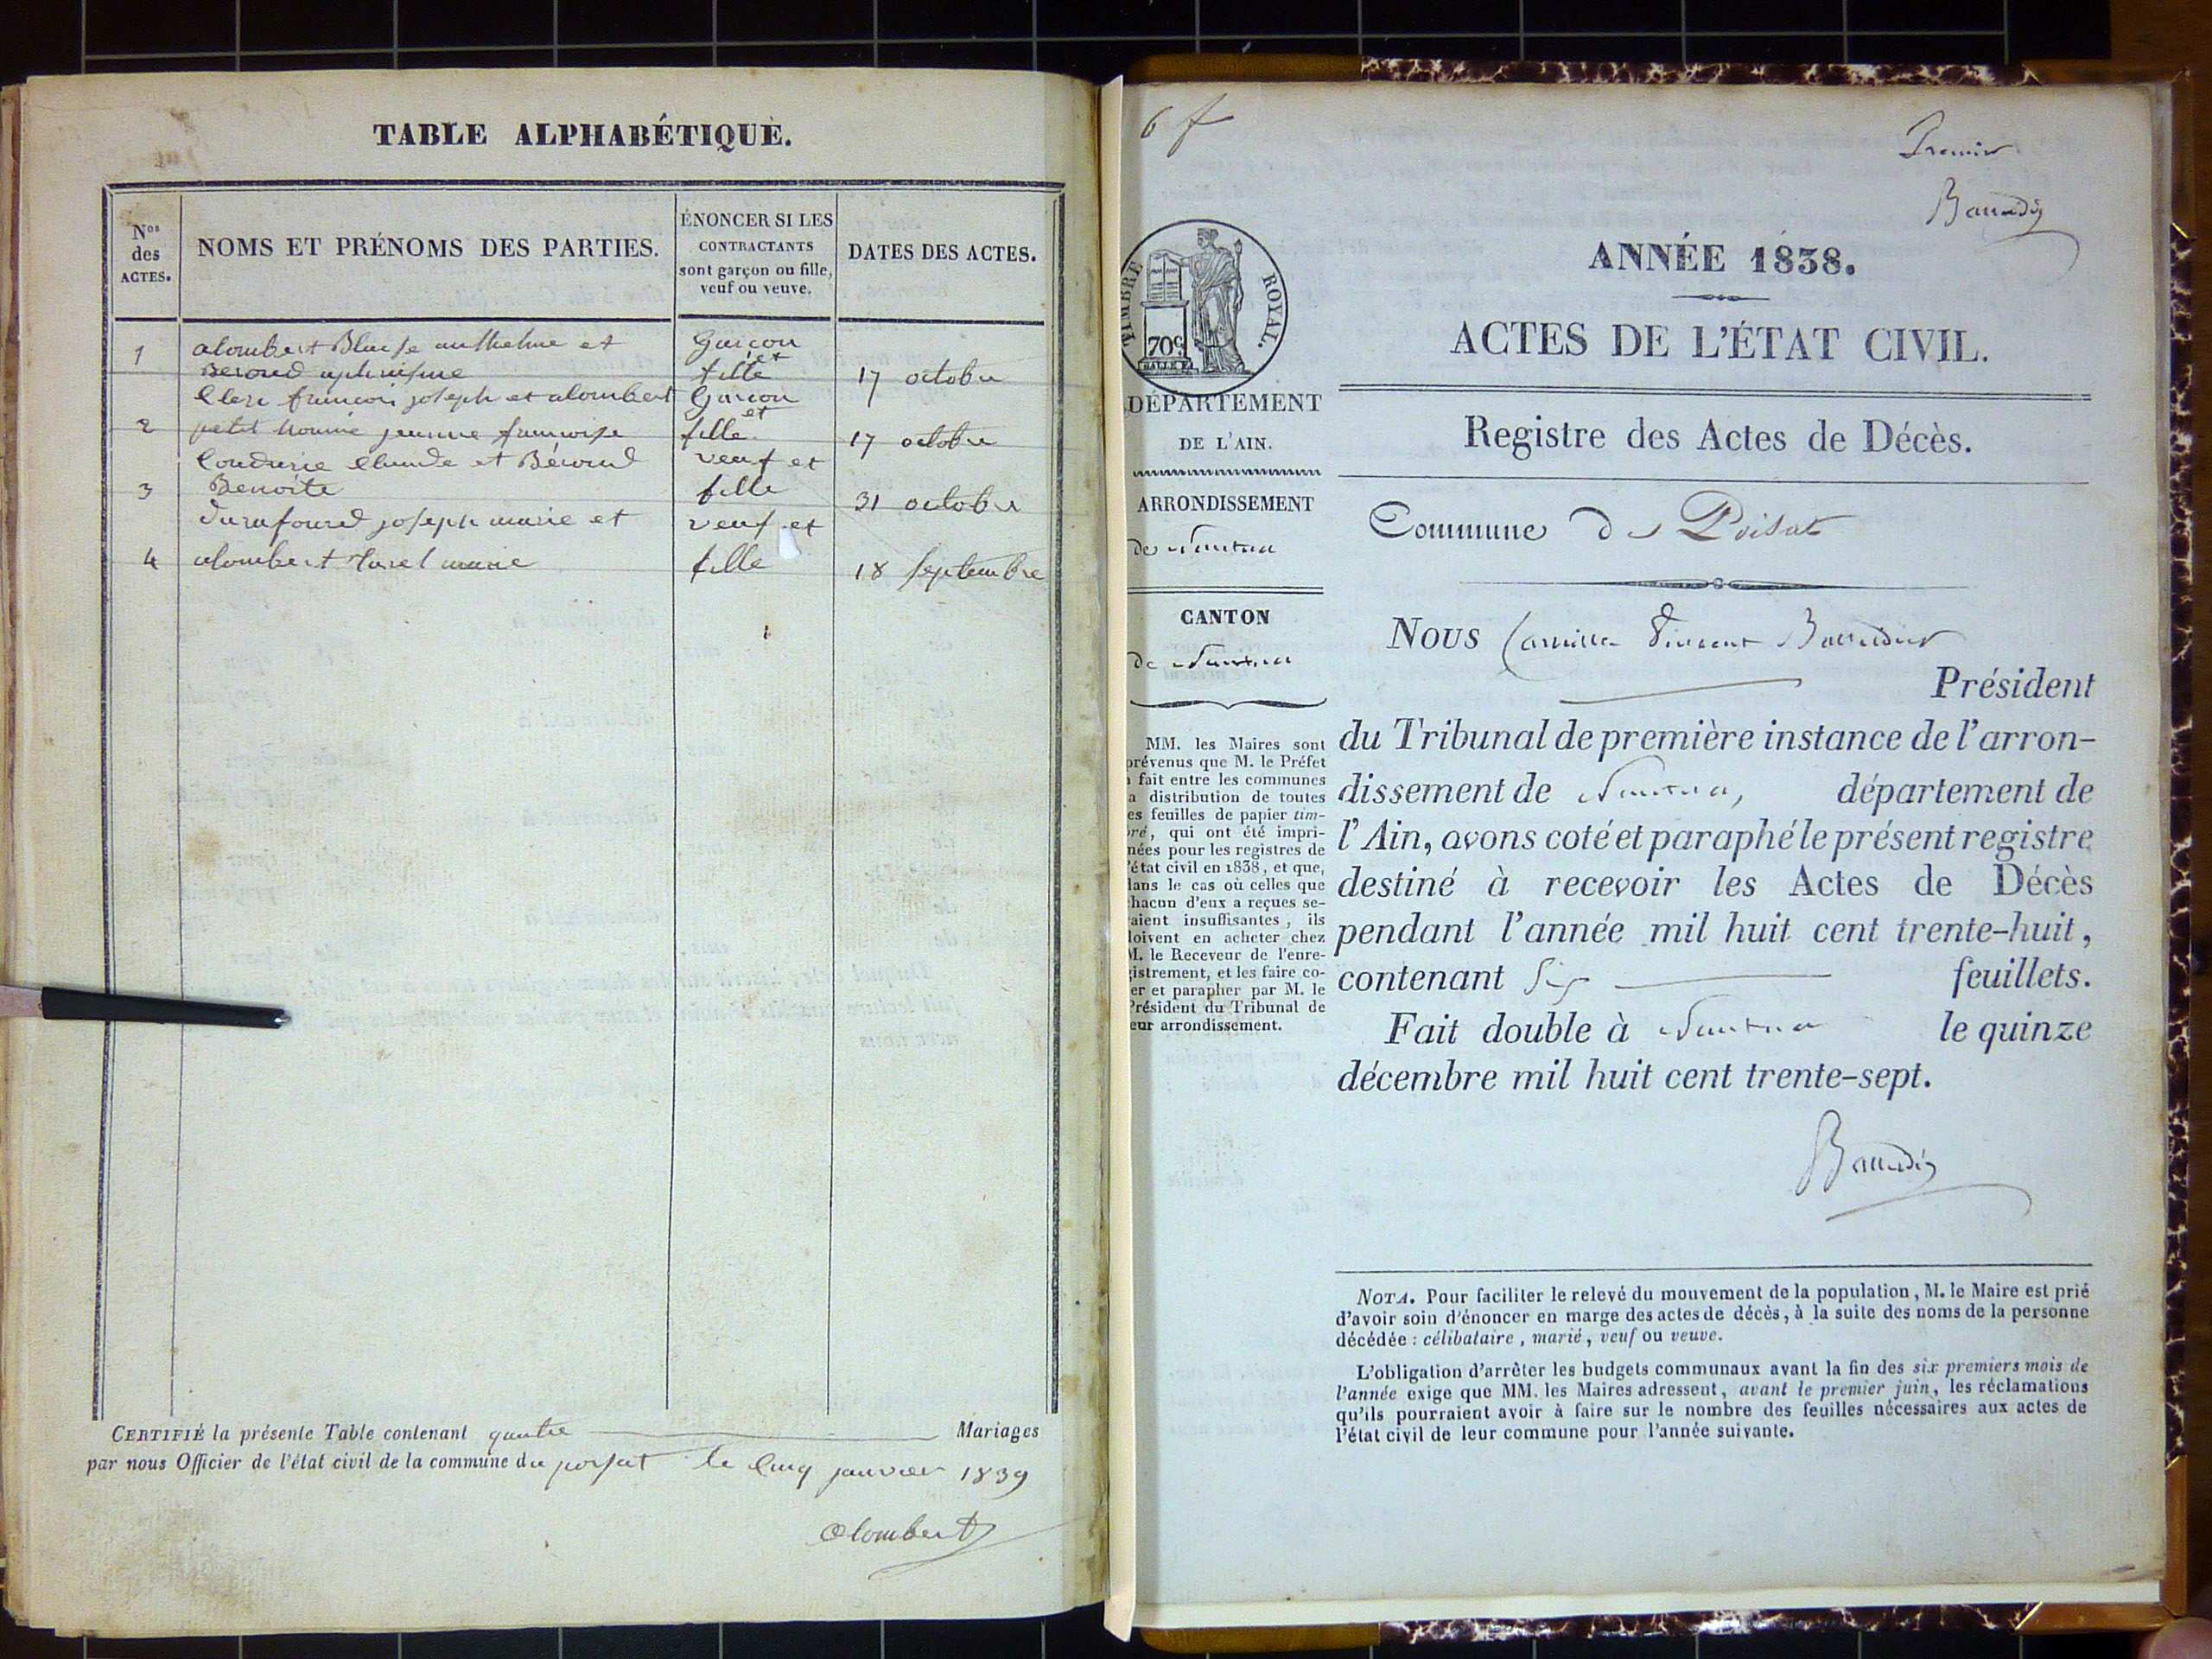 TABLE ALPHABÉTIQUE.
Nos des ACTES.
NOMS ET PRÉNOMS DES PARTIES.
ÉNONCER SI LES
CONTRACTANTS
sont garçon ou fille,
veuf ou veuve.
DATES DES ACTES.
1 alombert Blaise anthelme et Garçon et
Beroud fille 17 octobre
Clerc francois joseph et alombert Garcon et
2 petit homme jeanne francoise fille 17 octobre
Coudurie Claude et Béroud veuf et
3 Benoite fille 31 octobre
Durafourd joseph marie et veuf et
4 alombert marie fille 18 septembre
CERTIFIÉ la présente Table contenant quatre Mariages
par nous Officier de l'état civil de la commune du poisat le Cinq janvier 1839
Alombert
6 f
Premier
Baudin
TIMBRE ROYAL.
70c
ANNÉE 1838.
ACTES DE L'ÉTAT CIVIL.
Registre des Actes de Décès.
Commune de Poisat
DÉPARTEMENT
DE L'AIN.
ARRONDISSEMENT
de Nantua
CANTON
de Nantua
MM. les Maires sont
prévenus que M. le Préfet
a fait entre les communes
la distribution de toutes
les feuilles de papier tim-
bré, qui ont été impri-
mées pour les registres de
l'état civil en 1838, et que,
dans le cas où celles que
chacun d'eux a reçues se-
raient insuffisantes, ils
doivent en acheter chez
M. le Receveur de l'enre-
gistrement, et les faire co-
ter et parapher par M. le
Président du Tribunal de
leur arrondissement.
Nous Camille Vincent
Président
du Tribunal de première instance de l'arron-
dissement de Nantua, département de
l'Ain, avons coté et paraphé le présent registre
destiné à recevoir les Actes de Décès
pendant l'année mil huit cent trente-huit,
contenant Six feuillets.
Fait double à Nantua le quinze
décembre mil huit cent trente-sept.
NOTA. Pour faciliter le relevé du mouvement de la population, M. le Maire est prié
d'avoir soin d'énoncer en marge des actes de décès, à la suite des noms de la personne
décédée : célibataire, marié, veuf ou veuve.
L'obligation d'arrêter les budgets communaux avant la fin des six premiers mois de
l'année exige que MM. les Maires adressent, avant le premier juin, les réclamations
qu'ils pourraient avoir à faire sur le nombre des feuilles nécessaires aux actes de
l'état civil de leur commune pour l'année suivante.